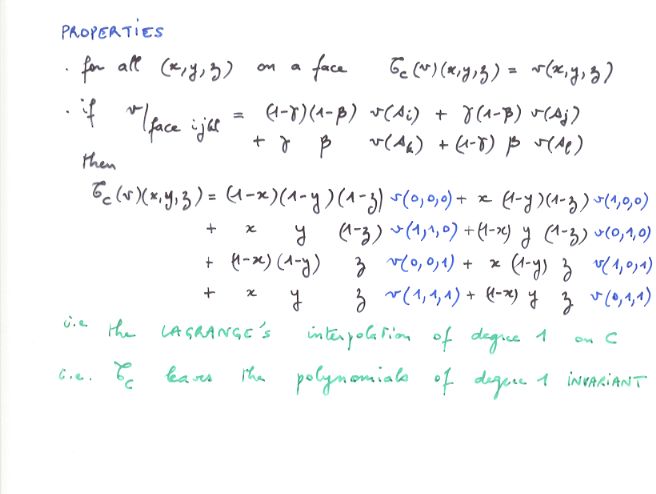 PROPERTIES
. for all (x,y,z) on a face 𝒢c(v)(x,y,z) = v(x,y,z)
. if v/face ijkl = (1-γ)(1-β) v(Ai) + γ(1-β) v(Aj)
+ γ β v(Ak) + (1-γ) β v(Al)
then
𝒢c(v)(x,y,z) = (1-x)(1-y)(1-z) v(0,0,0) + x (1-y)(1-z) v(1,0,0)
+ x y (1-z) v(1,1,0) + (1-x) y (1-z) v(0,1,0)
+ (1-x)(1-y) z v(0,0,1) + x (1-y) z v(1,0,1)
+ x y z v(1,1,1) + (1-x) y z v(0,1,1)
i.e the LAGRANGE's interpolation of degree 1 on C
i.e. 𝒢c leaves the polynomials of degree 1 INVARIANT